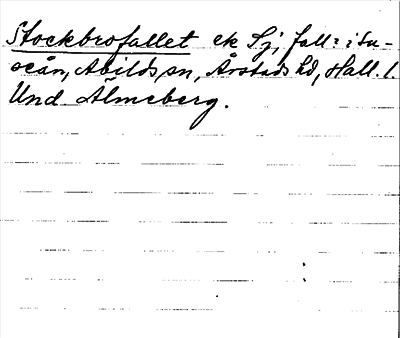 Stockbrofallet ek Sj, fall: i Su-
seån, Abilds sn, Årstads hd, Hall. l.
Und. Almeberg.